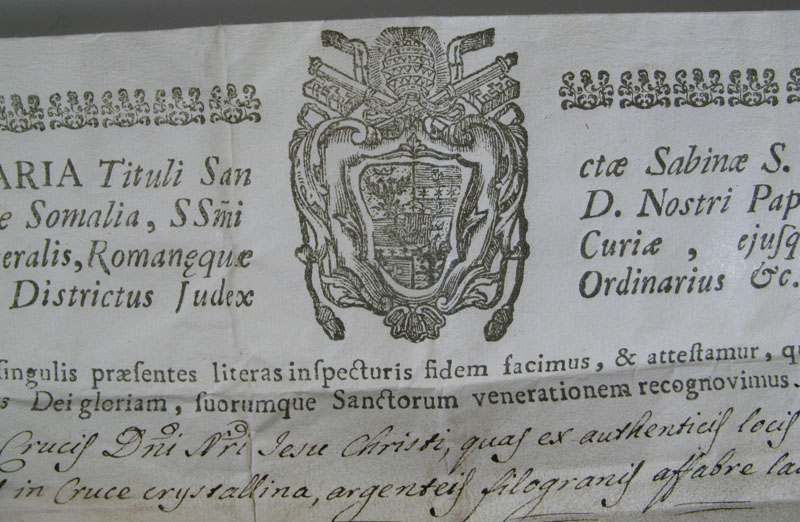 ARIA Tituli San ctæ Sabinæ S.
e Somalia, SSm̃i D. Nostri Pap
eralis, Romanęquæ Curiæ , ejuſq
Districtus Judex Ordinarius &c.
ſingulis præſentes literas inſpecturis fidem facimus, & atteſtamur, qu
s Dei gloriam, ſuorumque Sanctorum venerationem recognovimus
Crucis Dñi Nri Jesu Christi, quas ex authenticis locis
in Cruce crystallina, argenteis filogranis affabre la